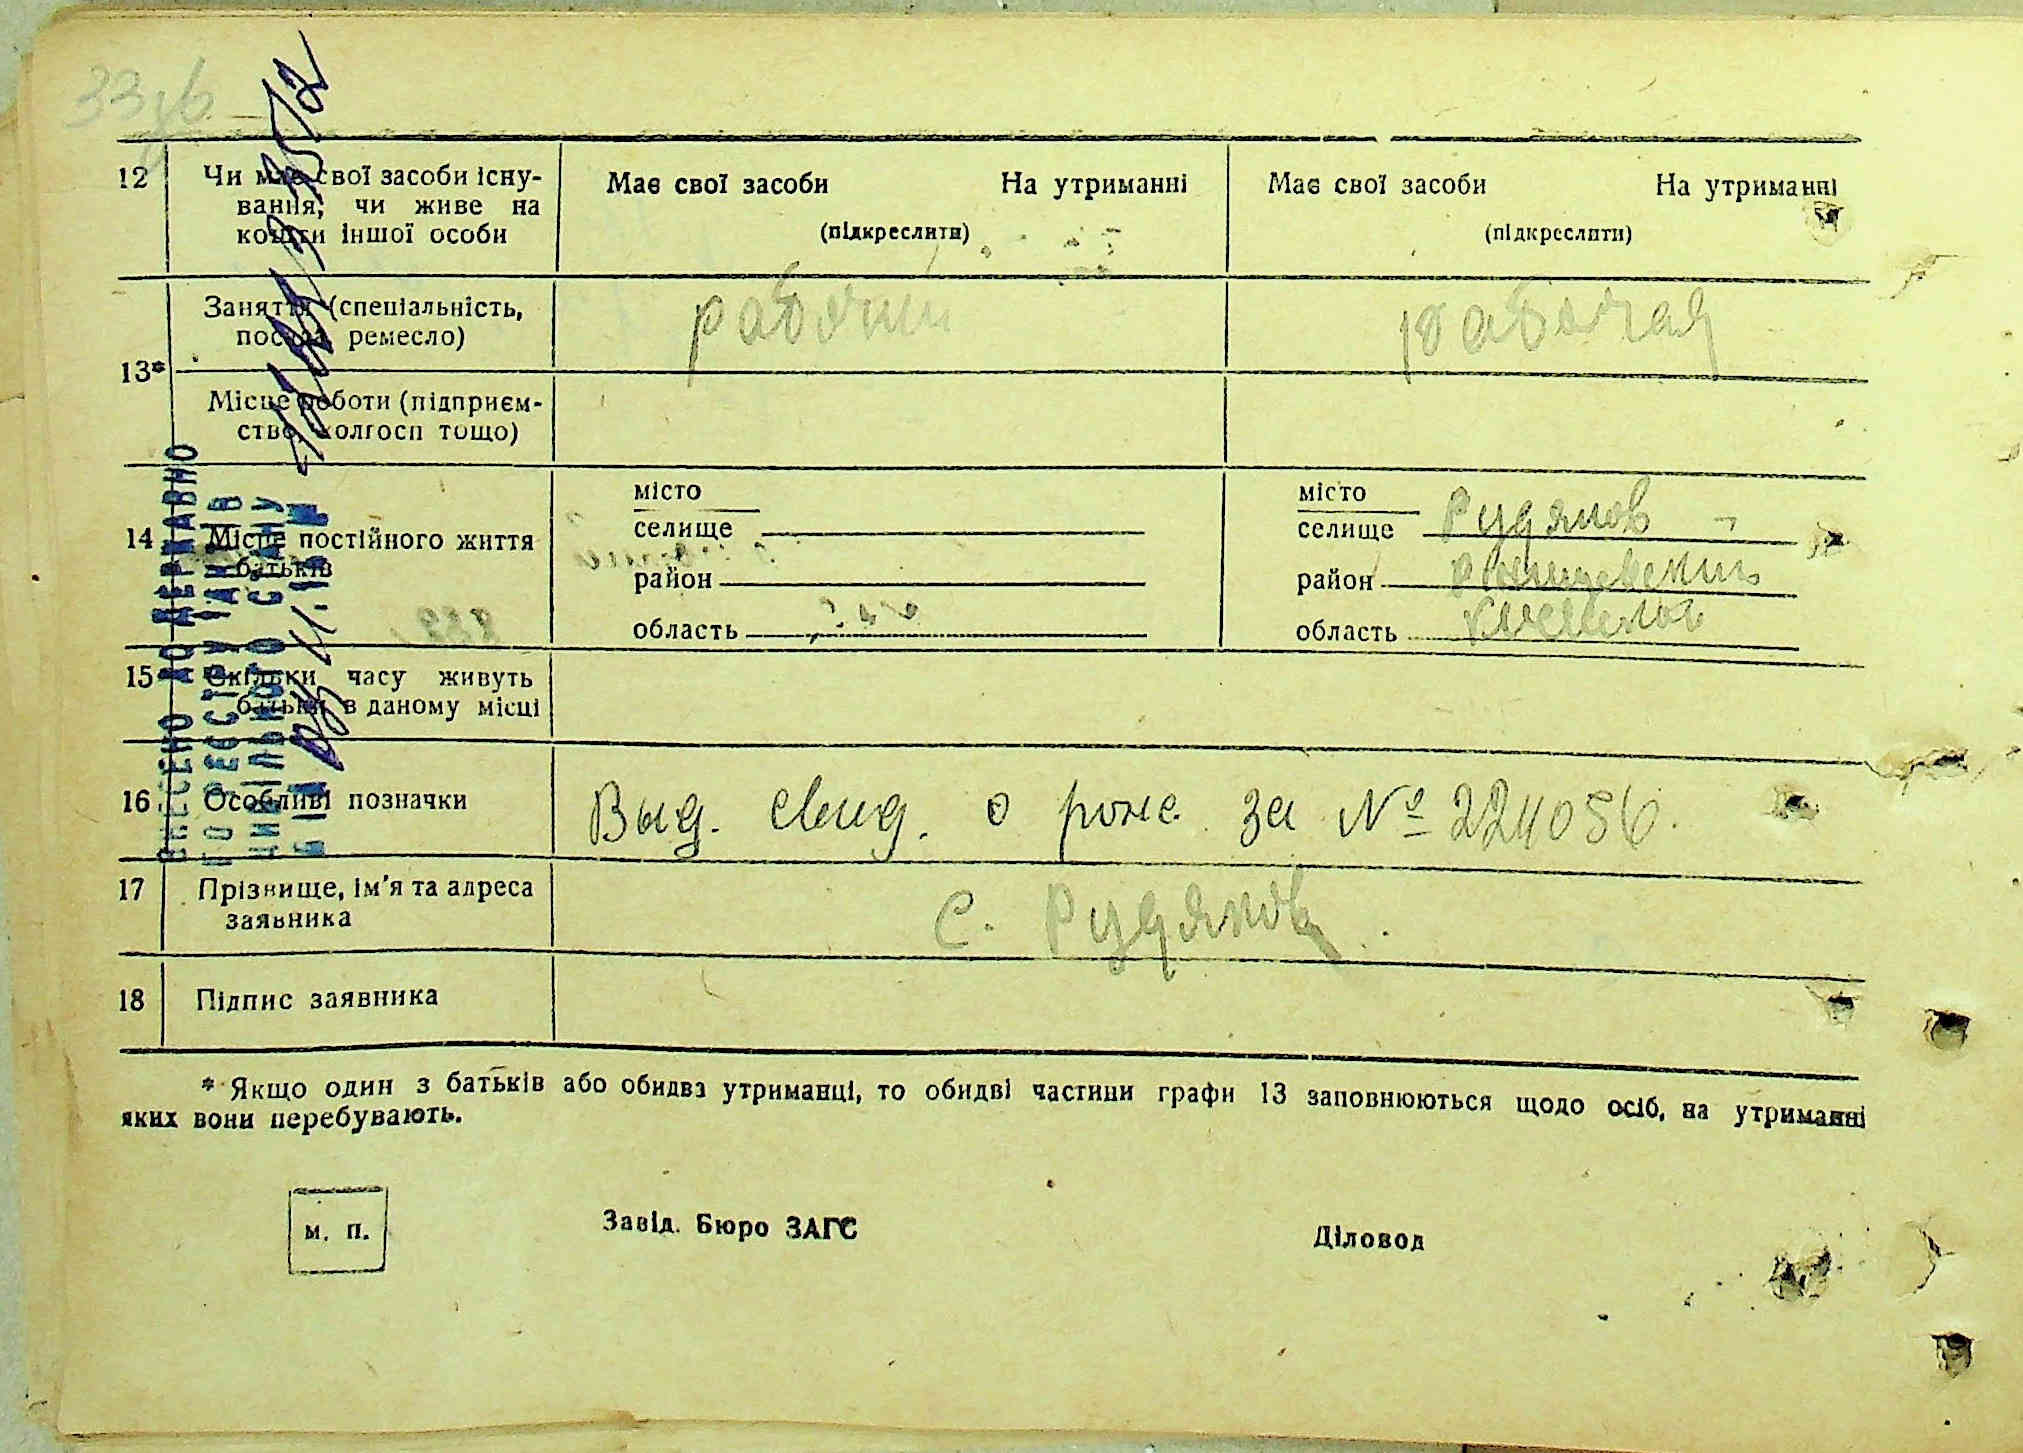 33зв
12 Чи має свої засоби існу-
вання, чи живе на
кошти іншої особи
Має свої засоби На утриманні
(підкреслити)
Має свої засоби На утриманні
(підкреслити)
13*
Заняття (спеціальність,
посада, ремесло)
рабочий
рабочая
Місце роботи (підприєм-
ство, колгосп тощо)
14 Місце постійного життя
батьків
місто
селище
район
область
місто
селище Рудяков
район
область Киевская
15 Скільки часу живуть
батьки в даному місці
16 Особливі позначки
Выд. свид. о рожд. за № 224056.
17 Прізвище, ім'я та адреса
заявника
С. Рудяков
18 Підпис заявника
* Якщо один з батьків або обидва утриманці, то обидві частини графи 13 заповнюються щодо осіб, на утриманні
яких вони перебувають.
М. П.
Завід. Бюро ЗАГС
Діловод
ВНЕСЕНО ДО ДЕРЖАВНО
ГО РЕЄСТРУ ЧАНІВ
ЦИВІЛЬНОГО СТАНУ